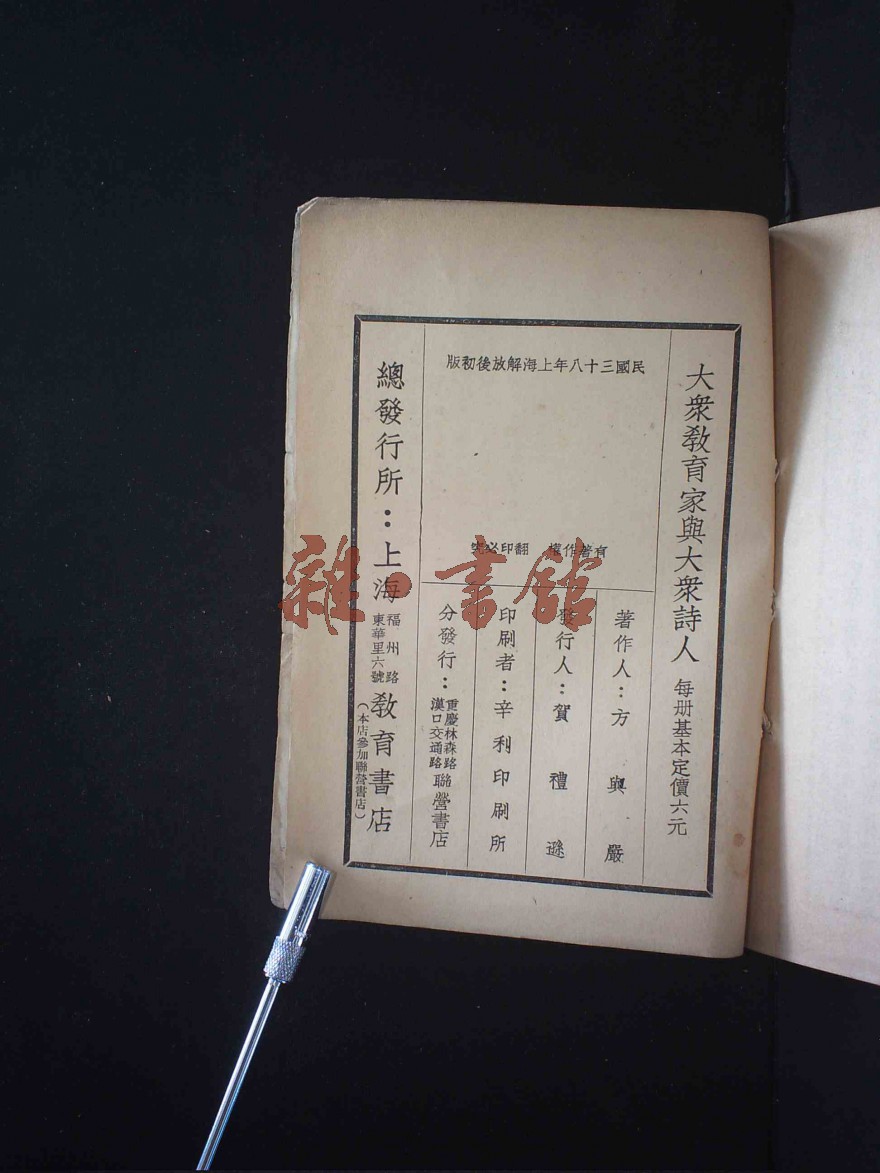 大衆教育家與大衆詩人 每册基本定價六元
民國三十八年上海解放後初版
有著作權 翻印必究
著作人：方與嚴
發行人：賀禮遜
印刷者：辛利印刷所
分發行：重慶林森路 漢口交通路 聯營書店
總發行所：上海 福州路 東華里六號 教育書店
（本店參加聯營書店）
雜·書館